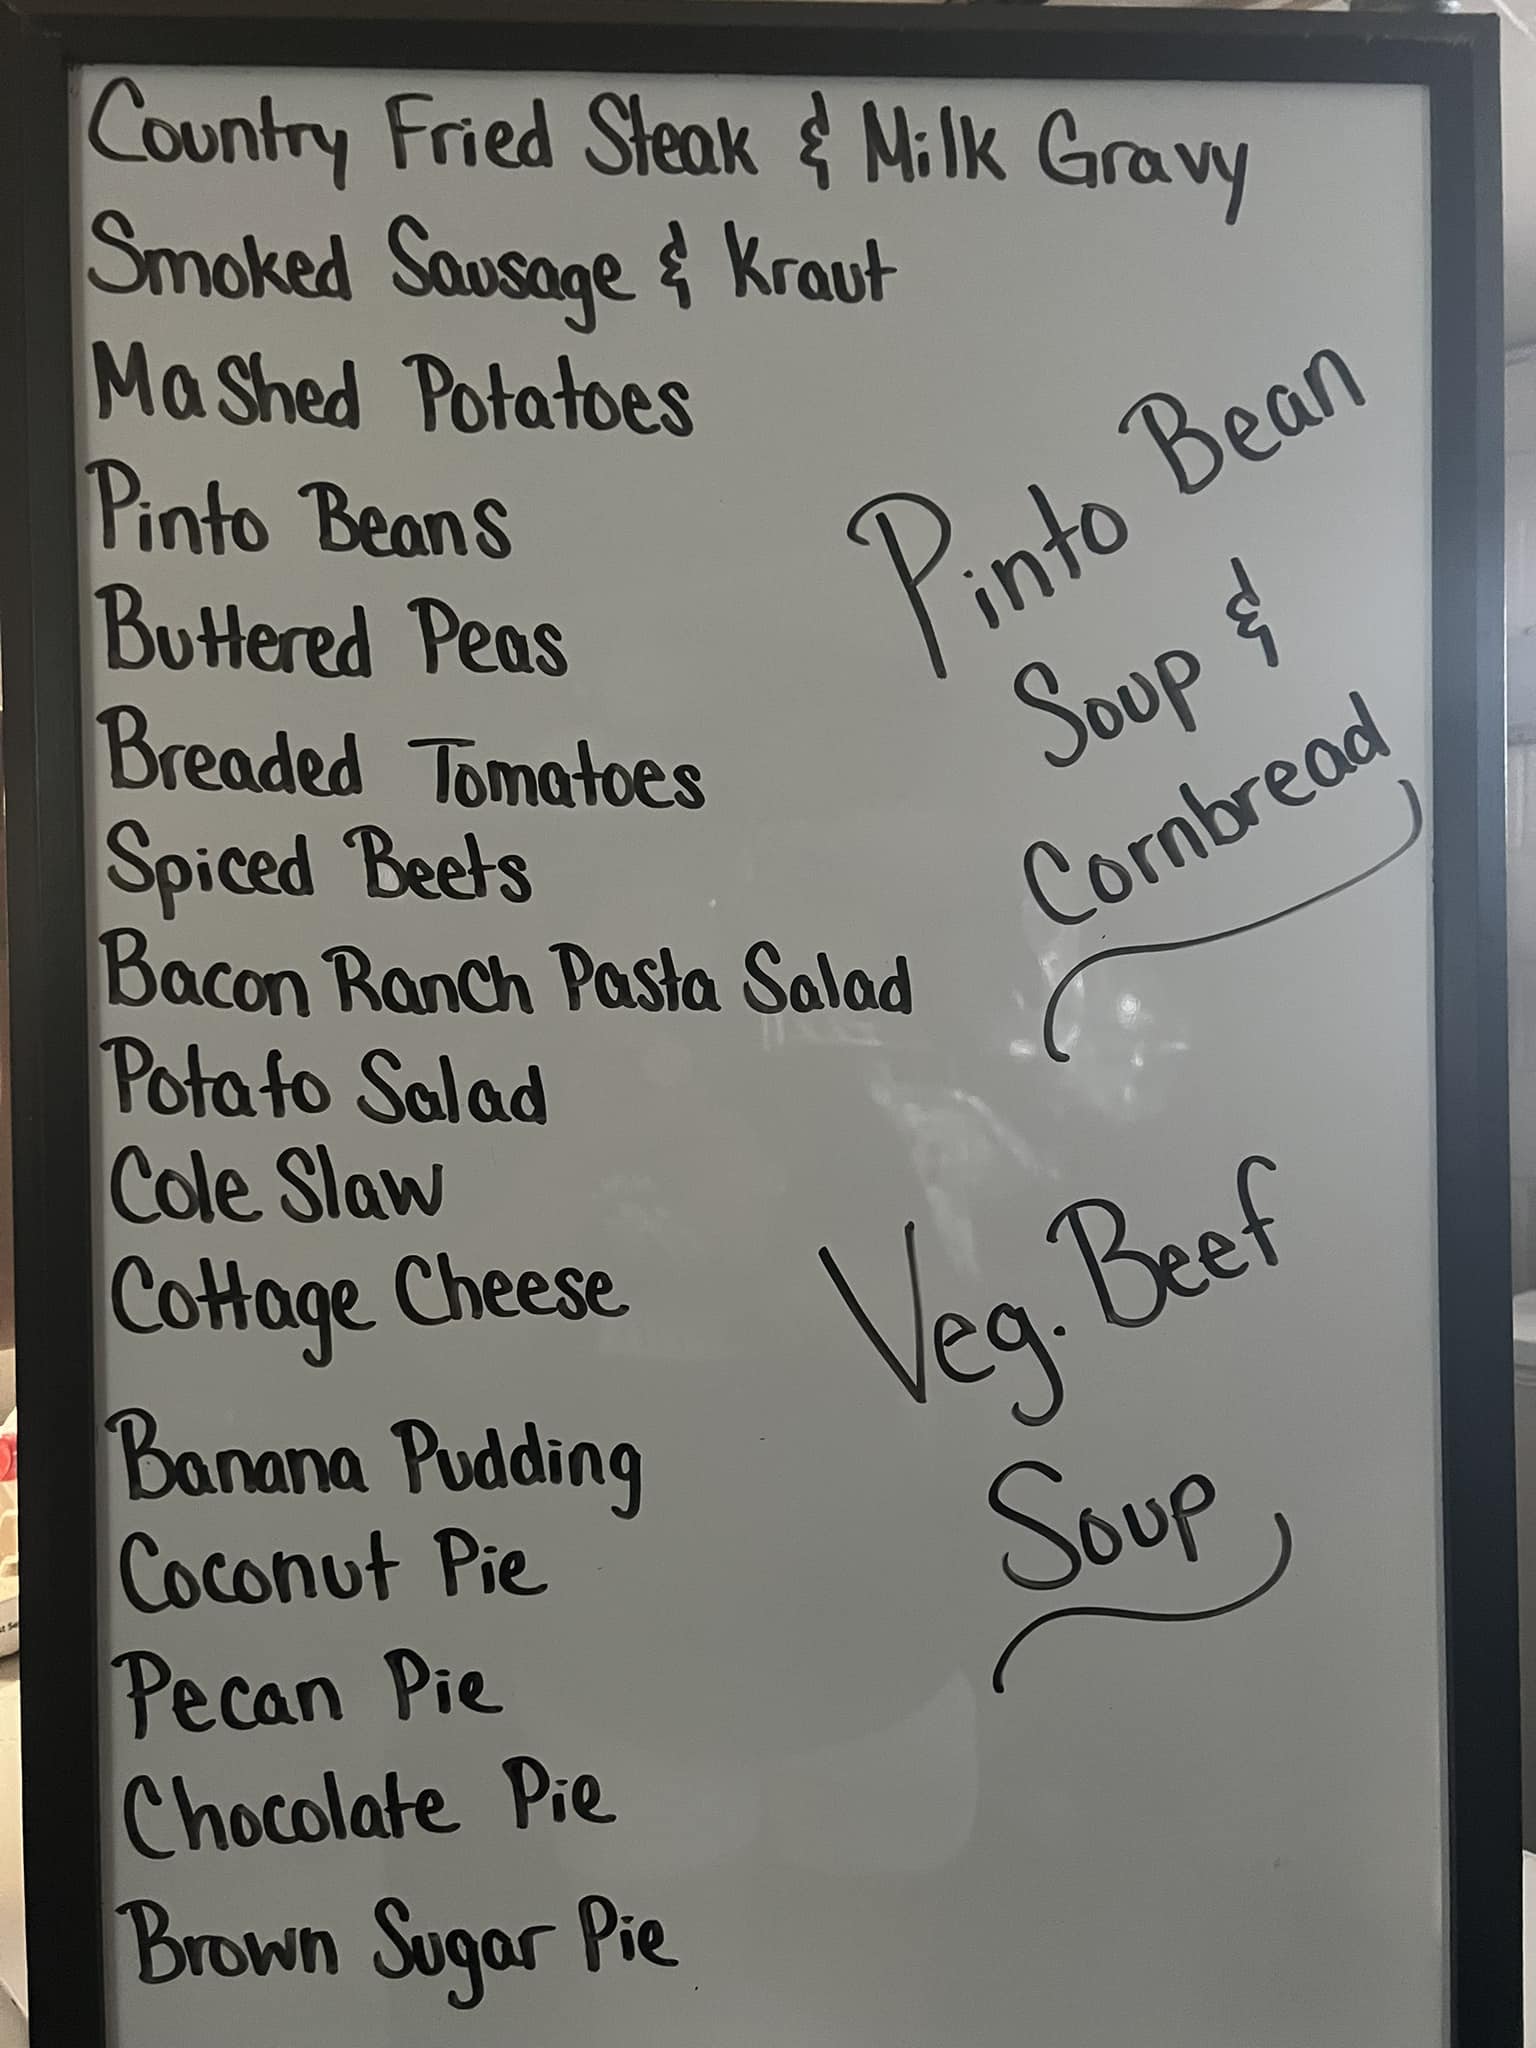 Country Fried Steak & Milk Gravy
Smoked Sausage & Kraut
Mashed Potatoes
Pinto Beans
Buttered Peas
Breaded Tomatoes
Spiced Beets
Bacon Ranch Pasta Salad
Potato Salad
Cole Slaw
Cottage Cheese
Banana Pudding
Coconut Pie
Pecan Pie
Chocolate Pie
Brown Sugar Pie
Pinto Bean
Soup &
Cornbread
Veg. Beef
Soup